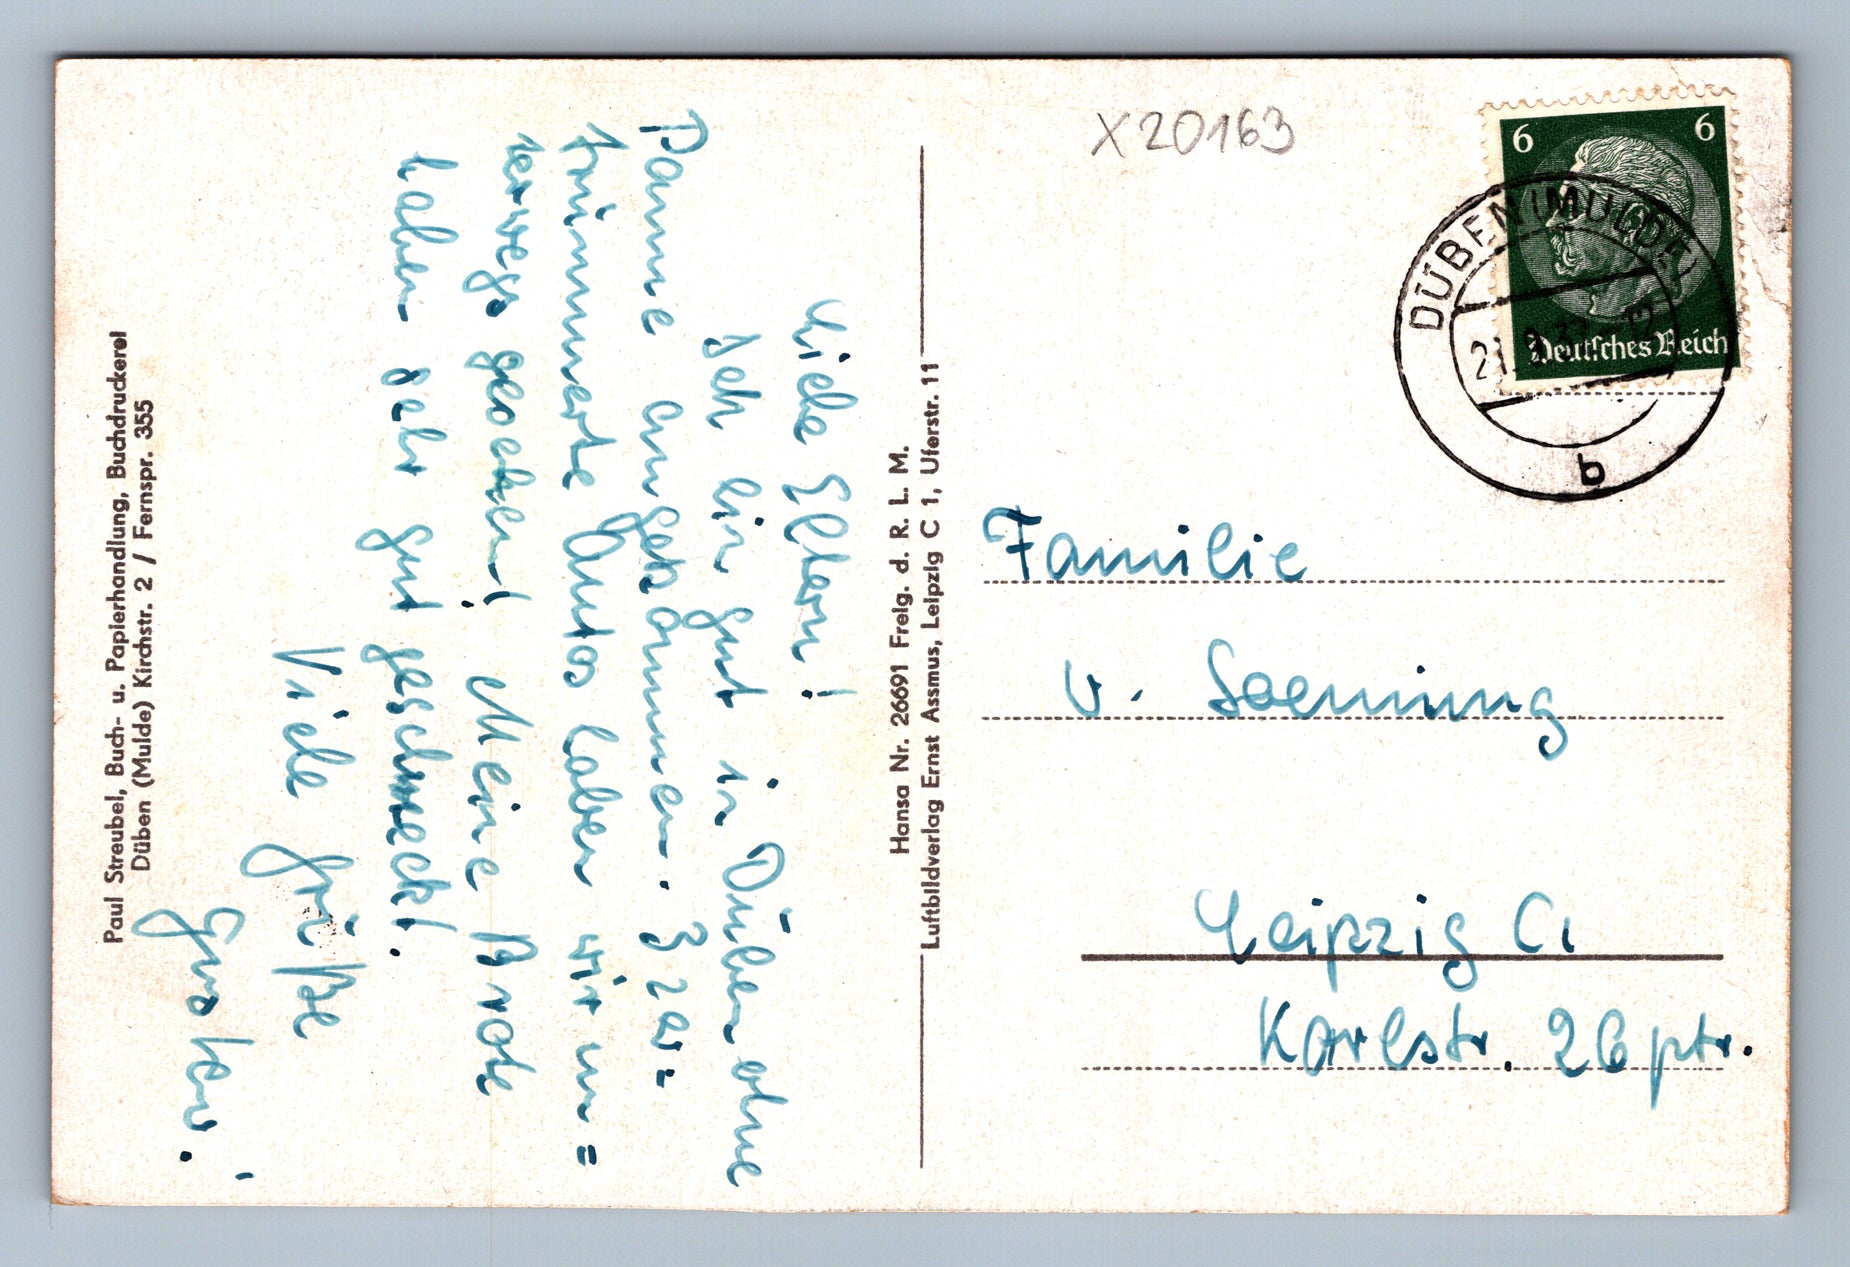 Paul Streubel, Buch- u. Papierhandlung, Buchdruckerei
Düben (Mulde) Kirchstr. 2 / Fernspr. 355
Liebe Eltern!
Ich bin gut in Düben ohne
Panne angekommen. 3 zer-
trümmerte Autos haben wir un=
terwegs gesehen! Meine Brote
haben sehr gut geschmeckt.
Viele Grüße
Gusten.
Hansa Nr. 26691 Freig. d. R. L. M.
Luftbildverlag Ernst Assmus, Leipzig C 1, Uferstr. 11
X20163
6 6
Deutsches Reich
DÜBEN (MULDE)
21.
b
Familie
v. Loenning
Leipzig C1
Karlstr. 26 ptr.